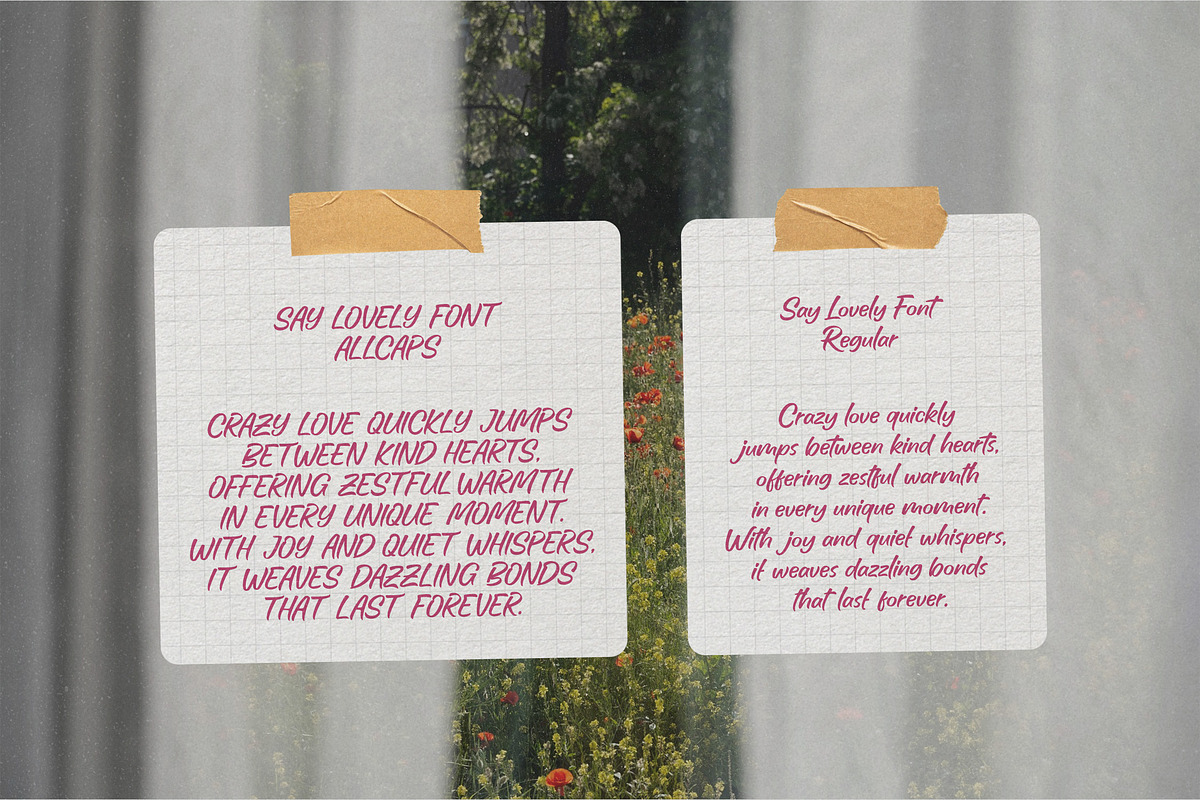 SAY LOVELY FONT
ALLCAPS
CRAZY LOVE QUICKLY JUMPS
BETWEEN KIND HEARTS.
OFFERING ZESTFUL WARMTH
IN EVERY UNIQUE MOMENT.
WITH JOY AND QUIET WHISPERS.
IT WEAVES DAZZLING BONDS
THAT LAST FOREVER.
Say Lovely Font
Regular
Crazy love quickly
jumps between kind hearts,
offering zestful warmth
in every unique moment.
With joy and quiet whispers,
it weaves dazzling bonds
that last forever.